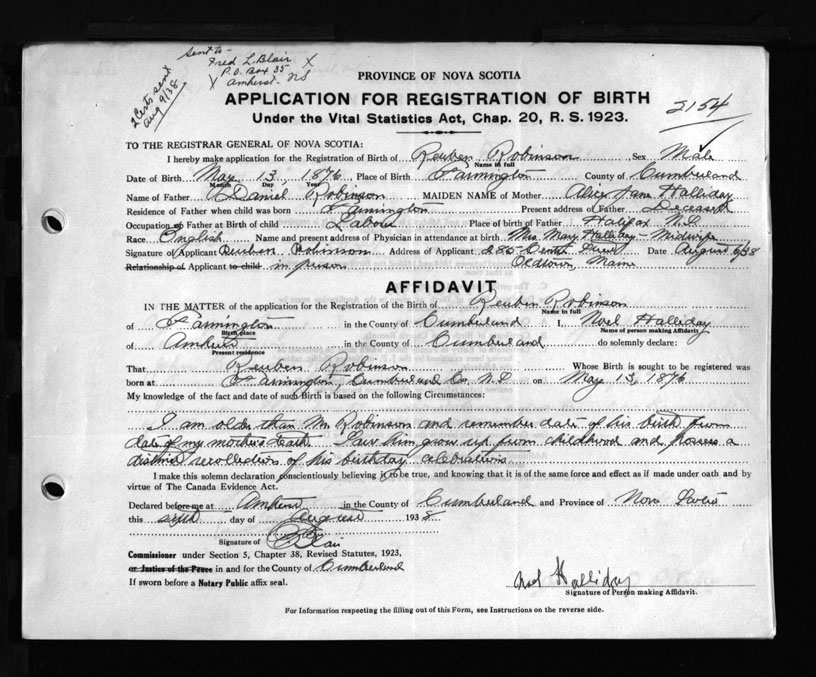 Sent to
Fred L. Blair X
P.O. Box 35
X Amherst NS
2 Certs sent
Aug 9/38
PROVINCE OF NOVA SCOTIA
APPLICATION FOR REGISTRATION OF BIRTH
2154
Under the Vital Statistics Act, Chap. 20, R. S. 1923.
TO THE REGISTRAR GENERAL OF NOVA SCOTIA:
I hereby make application for the Registration of Birth of Reuben Robinson Sex Male
Name in full
Date of Birth May 13, 1876, Place of Birth Farmington County of Cumberland
Month Day Year
Name of Father Daniel Robinson MAIDEN NAME of Mother Alice Jane Halliday
Residence of Father when child was born Farmington Present address of Father Deceased
Occupation of Father at Birth of child Labour Place of birth of Father Halifax N.S.
Race English Name and present address of Physician in attendance at birth Mrs. Mary Halliday - Midwife
Signature of Applicant Reuben Robinson Address of Applicant 280 Street Date August 6/38
Relationship of Applicant to child in person Oldtown, Maine
AFFIDAVIT
IN THE MATTER of the application for the Registration of the Birth of Reuben Robinson
Name in full
of Farmington in the County of Cumberland I, Noel Halliday
Birth place Name of person making Affidavit
of Amherst in the County of Cumberland do solemnly declare:
Present residence
That Reuben Robinson Whose Birth is sought to be registered was
born at Farmington, Cumberland Co. N.S on May 13, 1876
My knowledge of the fact and date of such Birth is based on the following Circumstances:
I am older than Mr. Robinson and remember date of his birth from
date of my mother's death. I saw him grow up from childhood and possess a
distinct recollection of his birthday celebrations.
I make this solemn declaration conscientiously believing it to be true, and knowing that it is of the same force and effect as if made under oath and by
virtue of The Canada Evidence Act.
Declared before me at Amherst in the County of Cumberland and Province of Nova Scotia
this sixth day of August 1938
Signature of Blair
Commissioner under Section 5, Chapter 38, Revised Statutes, 1923,
or Justice of the Peace in and for the County of Cumberland
If sworn before a Notary Public affix seal.
Noel Halliday
Signature of Person making Affidavit.
For Information respecting the filling out of this Form, see Instructions on the reverse side.